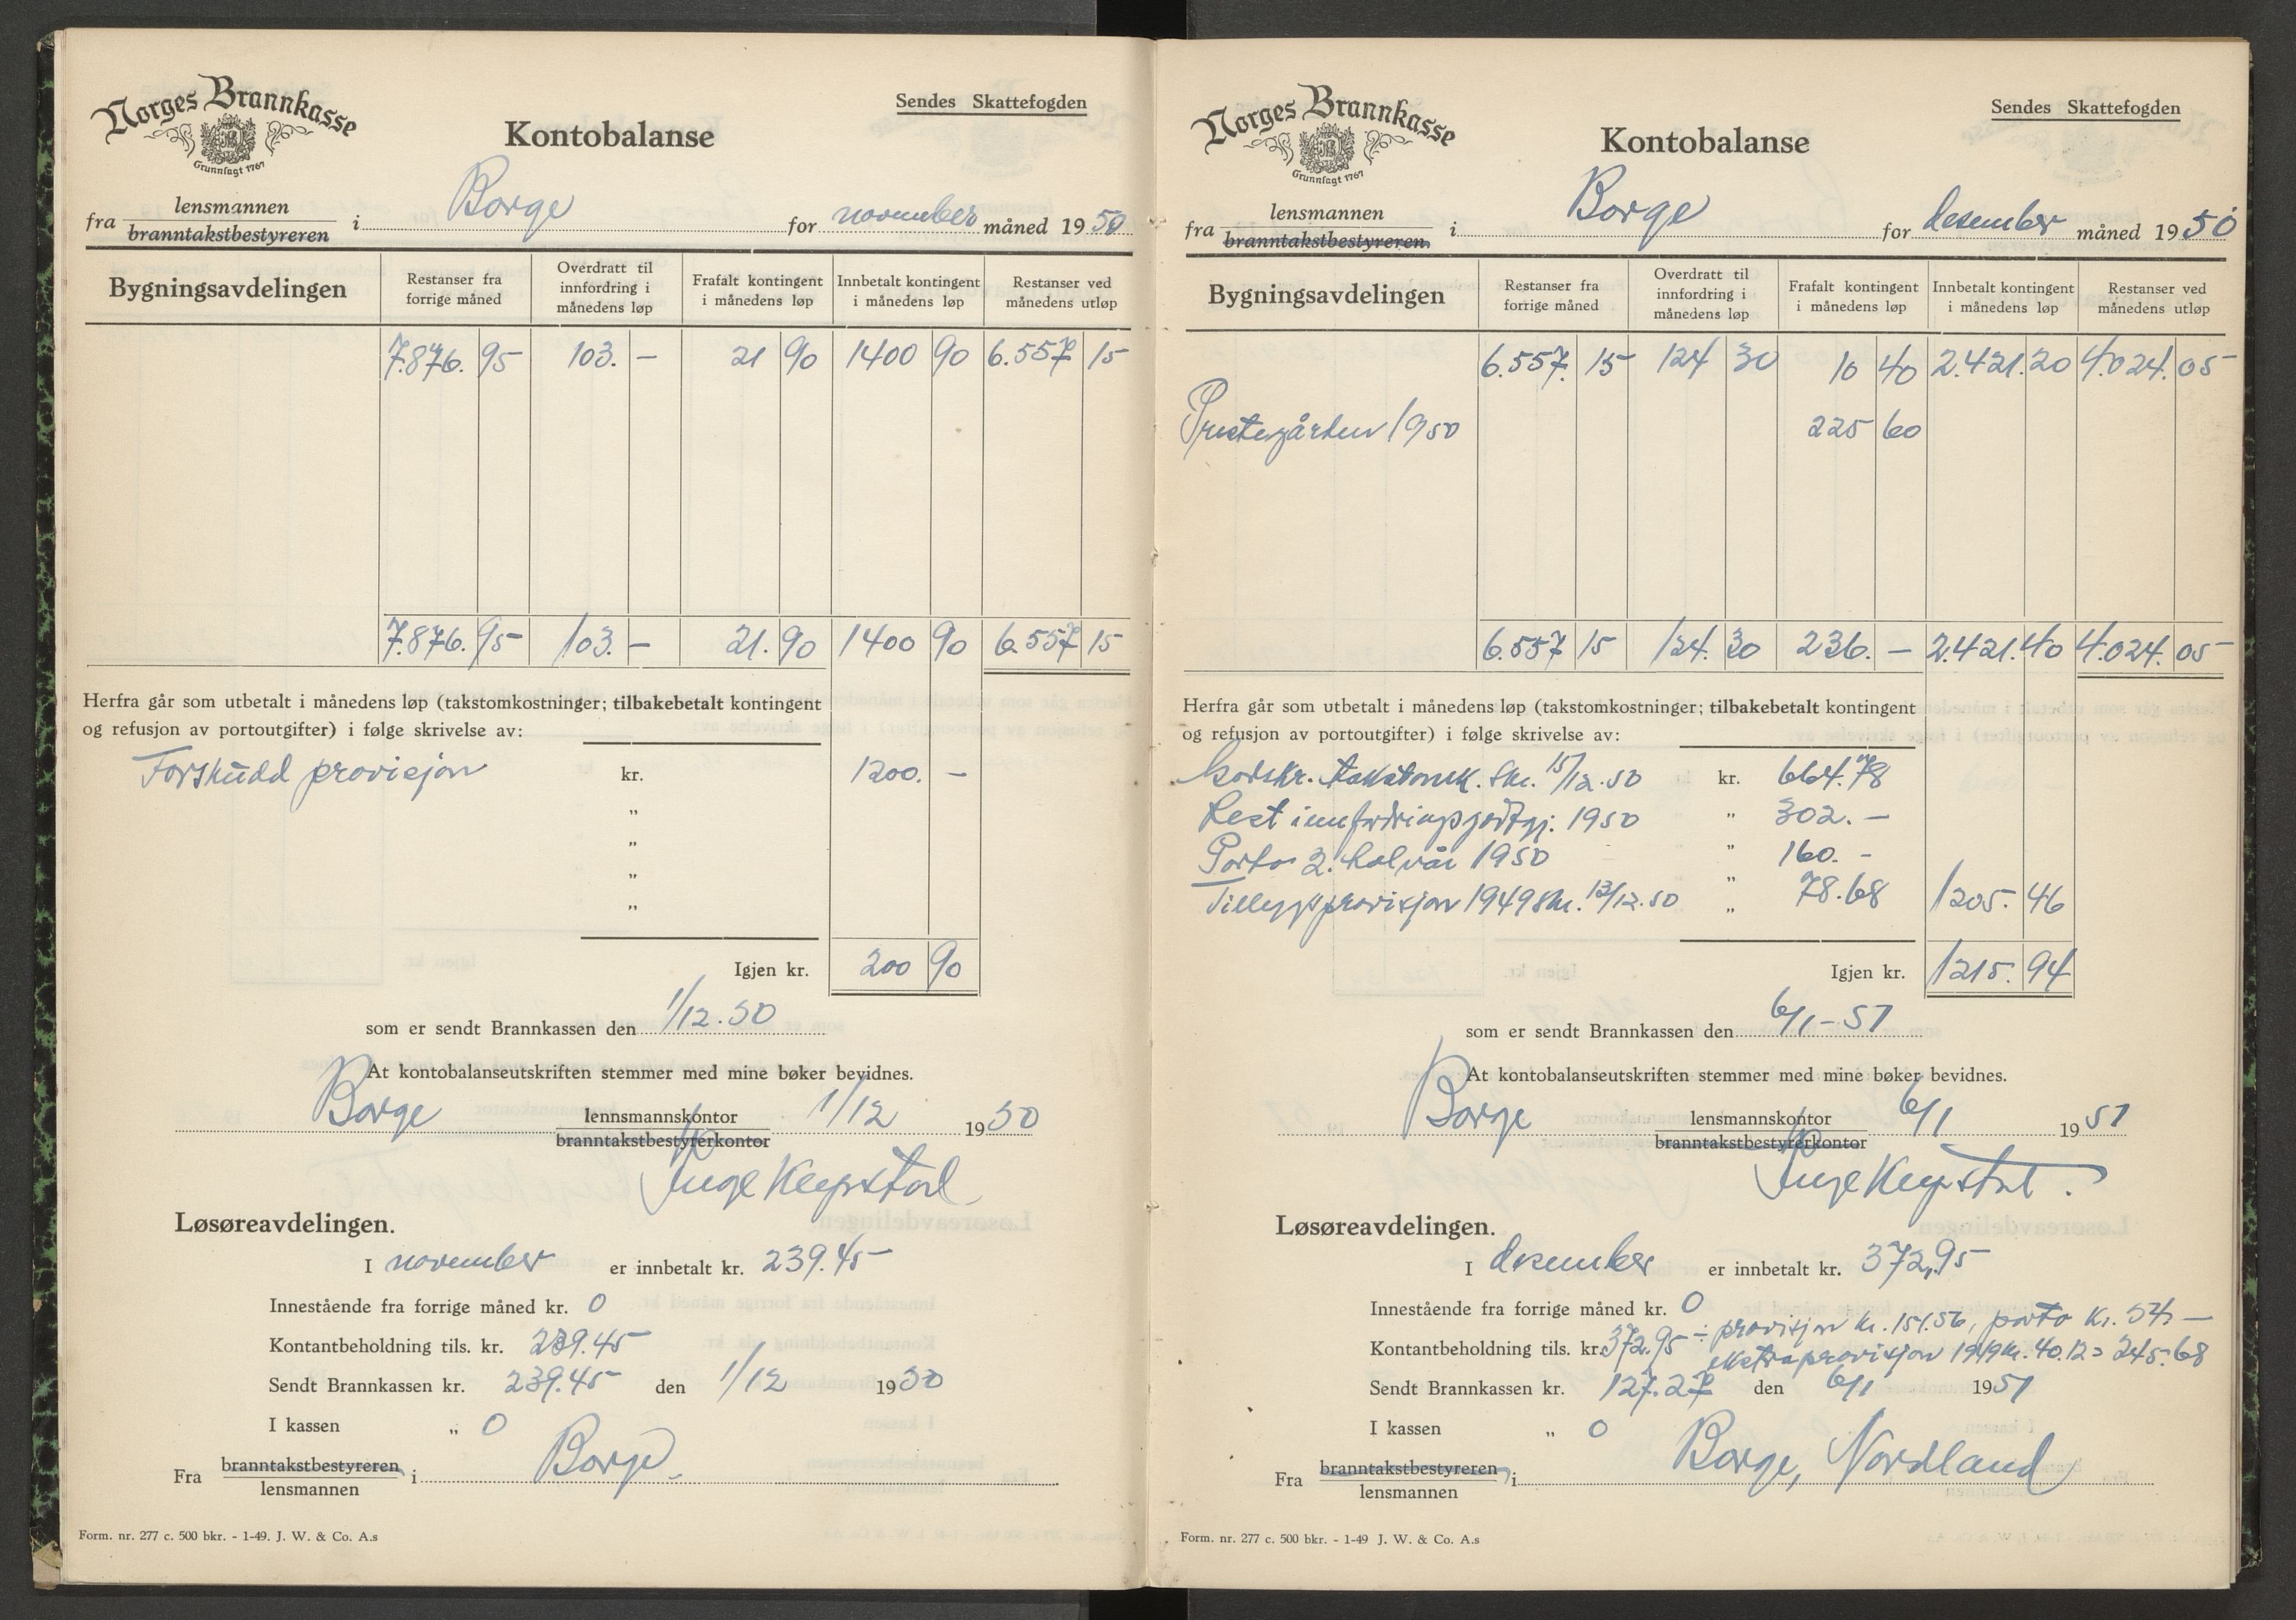 Norges Brannkasse
Grunnlagt 1767
Sendes Skattefogden
Kontobalanse
fra lensmannen i Borge for november måned 1950
branntakstbestyreren
Bygningsavdelingen | Restanser fra forrige måned | Overdratt til innfordring i månedens løp | Frafalt kontingent i månedens løp | Innbetalt kontingent i månedens løp | Restanser ved månedens utløp
7.876. 95 | 103. — | 21 90 | 1400 90 | 6.557 15
7.876. 95 | 103. — | 21. 90 | 1400 90 | 6.557 15
Herfra går som utbetalt i månedens løp (takstomkostninger; tilbakebetalt kontingent
og refusjon av portoutgifter) i følge skrivelse av:
Forskudd provisjon kr. 1200. —
„
„
„
„
Igjen kr. 200 90
som er sendt Brannkassen den 1/12.50
At kontobalanseutskriften stemmer med mine bøker bevidnes.
Borge lennsmannskontor 1/12 1950
branntakstbestyrerkontor
Løsøreavdelingen.
I november er innbetalt kr. 239.45
Innestående fra forrige måned kr. 0
Kontantbeholdning tils. kr. 239.45
Sendt Brannkassen kr. 239.45 den 1/12 1950
I kassen „ 0
Fra branntakstbestyreren i Borge.
lensmannen
Form. nr. 277 c. 500 bkr. - 1-49. J. W. & Co. A.s
Norges Brannkasse
Grunnlagt 1767
Sendes Skattefogden
Kontobalanse
fra lensmannen i Borge for desember måned 1950
branntakstbestyreren
Bygningsavdelingen | Restanser fra forrige måned | Overdratt til innfordring i månedens løp | Frafalt kontingent i månedens løp | Innbetalt kontingent i månedens løp | Restanser ved månedens utløp
6.557. 15 | 124 30 | 10 40 | 2.421. 20 | 4.024. 05
Prestegården 1950 225 60
6.557 15 | 124. 30 | 236. — | 2.421. 40 | 4.024. 05
Herfra går som utbetalt i månedens løp (takstomkostninger; tilbakebetalt kontingent
og refusjon av portoutgifter) i følge skrivelse av:
Godskr. takstomk. skr. 15/12.50 kr. 664.78
Rest innfordringsgodtgj. 1950 „ 302. —
Porto 2. halvår 1950 „ 160. -
Tilleggsprovisjon 1949 skr. 13/12.50 „ 78.68 1205. 46
„
Igjen kr. 1215. 94
som er sendt Brannkassen den 6/1-51
At kontobalanseutskriften stemmer med mine bøker bevidnes.
Borge lensmannskontor 6/1 1951
branntakstbestyrerkontor
Løsøreavdelingen.
I desember er innbetalt kr. 372,95
Innestående fra forrige måned kr. 0
÷ provisjon kr. 151.56, porto kr. 54. —
Kontantbeholdning tils. kr. 372.95 ekstraprovisjon 1949 kr. 40.12 = 245.68
Sendt Brannkassen kr. 127.27 den 6/1 1951
I kassen „ 0
Fra branntakstbestyreren i Borge, Nordland
lensmannen
Form. nr. 277 c. 500 bkr. - 1-49 J. W. & Co. A.s